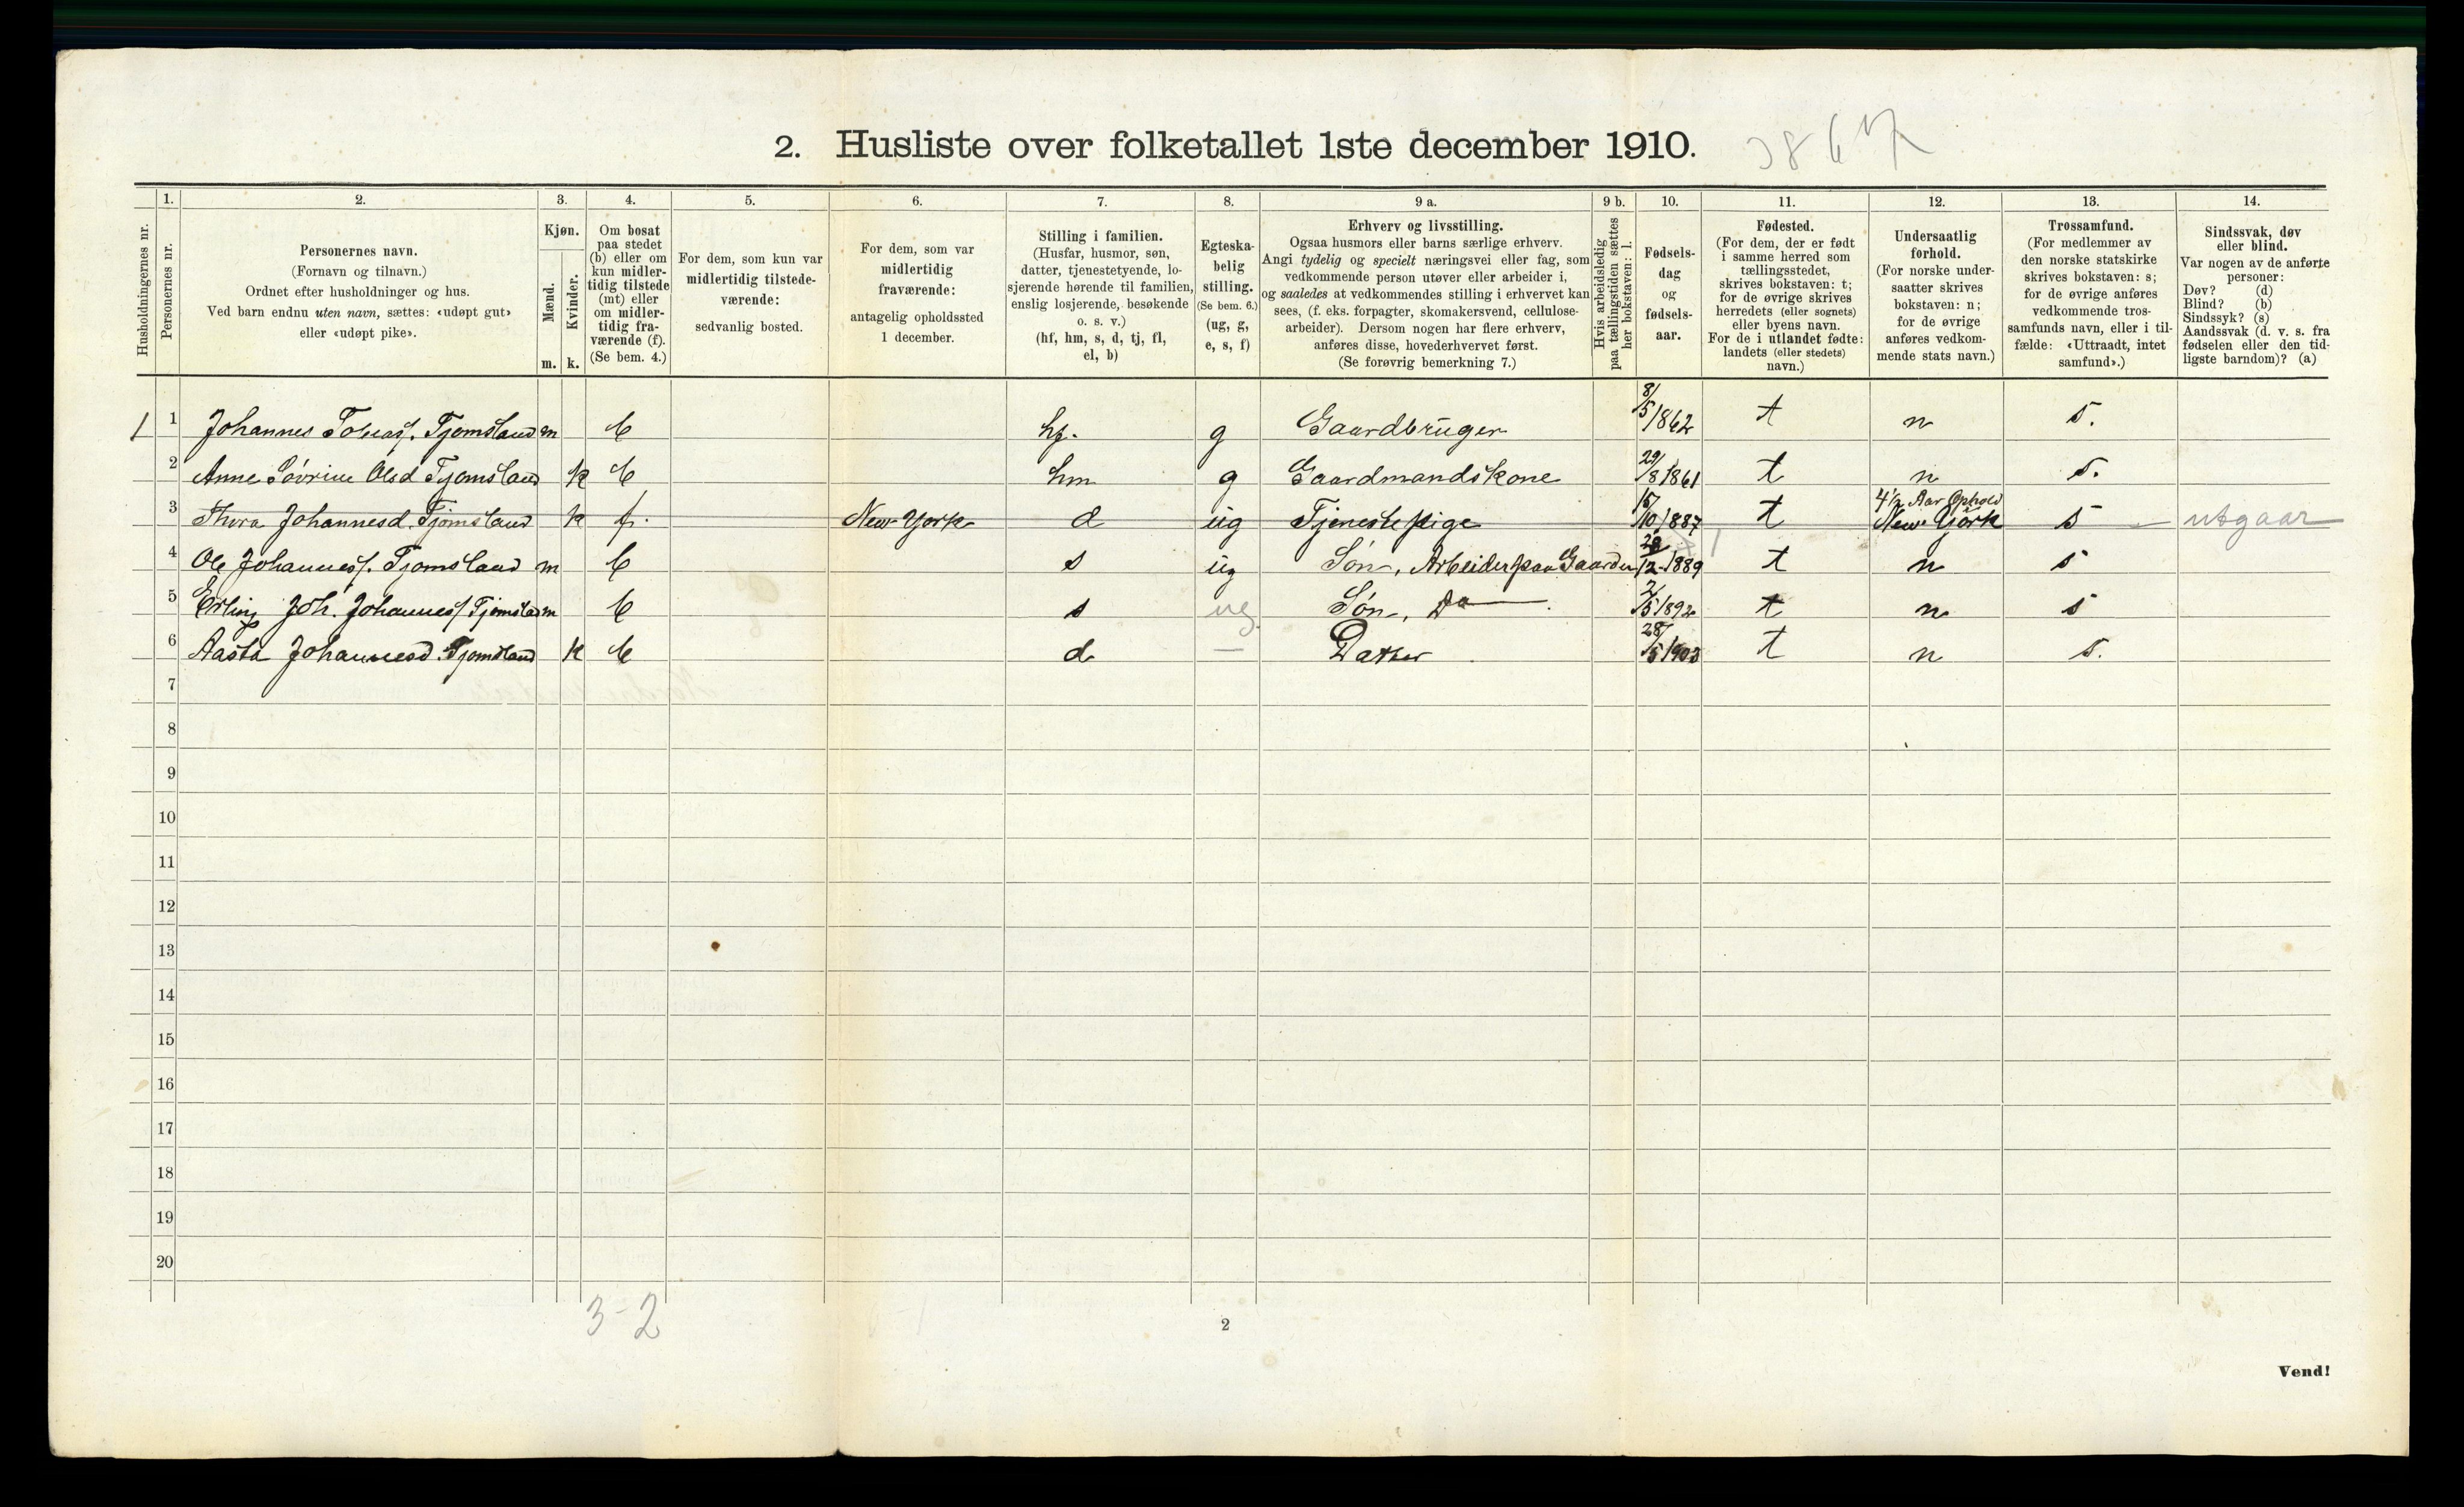 2. Husliste over folketallet 1ste december 1910.
3867
Husholdningernes nr.
1.
Personernes nr.
2.
Personernes navn.
(Fornavn og tilnavn.)
Ordnet efter husholdninger og hus.
Ved barn endnu uten navn, sættes: «udøpt gut»
eller «udøpt pike».
3.
Kjøn.
Mænd.
Kvinder.
m. k.
4.
Om bosat
paa stedet
(b) eller om
kun midler-
tidig tilstede
(mt) eller
om midler-
tidig fra-
værende (f).
(Se bem. 4.)
5.
For dem, som kun var
midlertidig tilstede-
værende:
sedvanlig bosted.
6.
For dem, som var
midlertidig
fraværende:
antagelig opholdssted
1 december.
7.
Stilling i familien.
(Husfar, husmor, søn,
datter, tjenestetyende, lo-
sjerende hørende til familien,
enslig losjerende, besøkende
o. s. v.)
(hf, hm, s, d, tj, fl,
el, b)
8.
Egteska-
belig
stilling.
(Se bem. 6.)
(ug, g,
e, s, f)
9 a.
Erhverv og livsstilling.
Ogsaa husmors eller barns særlige erhverv.
Angi tydelig og specielt næringsvei eller fag, som
vedkommende person utøver eller arbeider i,
og saaledes at vedkommendes stilling i erhvervet kan
sees, (f. eks. forpagter, skomakersvend, cellulose-
arbeider). Dersom nogen har flere erhverv,
anføres disse, hovederhvervet først.
(Se forøvrig bemerkning 7.)
9 b.
Hvis arbeidsledig
paa tællingstiden sættes
her bokstaven: l.
10.
Fødsels-
dag
og
fødsels-
aar.
11.
Fødested.
(For dem, der er født
i samme herred som
tællingsstedet,
skrives bokstaven: t;
for de øvrige skrives
herredets (eller sognets)
eller byens navn.
For de i utlandet fødte:
landets (eller stedets)
navn.)
12.
Undersaatlig
forhold.
(For norske under-
saatter skrives
bokstaven: n;
for de øvrige
anføres vedkom-
mende stats navn.)
13.
Trossamfund.
(For medlemmer av
den norske statskirke
skrives bokstaven: s;
for de øvrige anføres
vedkommende tros-
samfunds navn, eller i til-
fælde: «Uttraadt, intet
samfund».)
14.
Sindssvak, døv
eller blind.
Var nogen av de anførte
personer:
Døv? (d)
Blind? (b)
Sindssyk? (s)
Aandssvak (d. v. s. fra
fødselen eller den tid-
ligste barndom)? (a)
1 1 Johannes Tobias. Tjomsland m b hf. g Gaardbruger 8/5 1862 t n s.
2 Anne Sovrine Olsd Tjomsland k b hm g Gaardmandskone 29/8 1861 t n s.
3 Thora Johannesd. Tjomsland k f. New-York d ug Tjenestepige 15/10 1887 t 4 1/2 Aar Ophold New-York s utgaar
4 Ole Johannes. Tjomsland m b s ug Søn, Arbeider paa Gaarden 12-1889 t n s
5 Erling Joh. Johannes. Tjomsland m b s ug Søn, Do 2/5 1892 t n s
6 Aasta Johannesd. Tjomsland k b d — Datter 28/5 1903 t n s.
7
8
9
10
11
12
13
14
15
16
17
18
19
20
3-2
2
Vend!